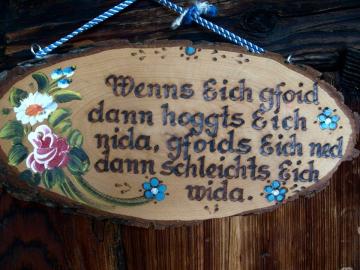 Wenns Eich gfoid
dann hoggts Eich
nida, gfoids Eich ned
dann schleichts Eich
wida.